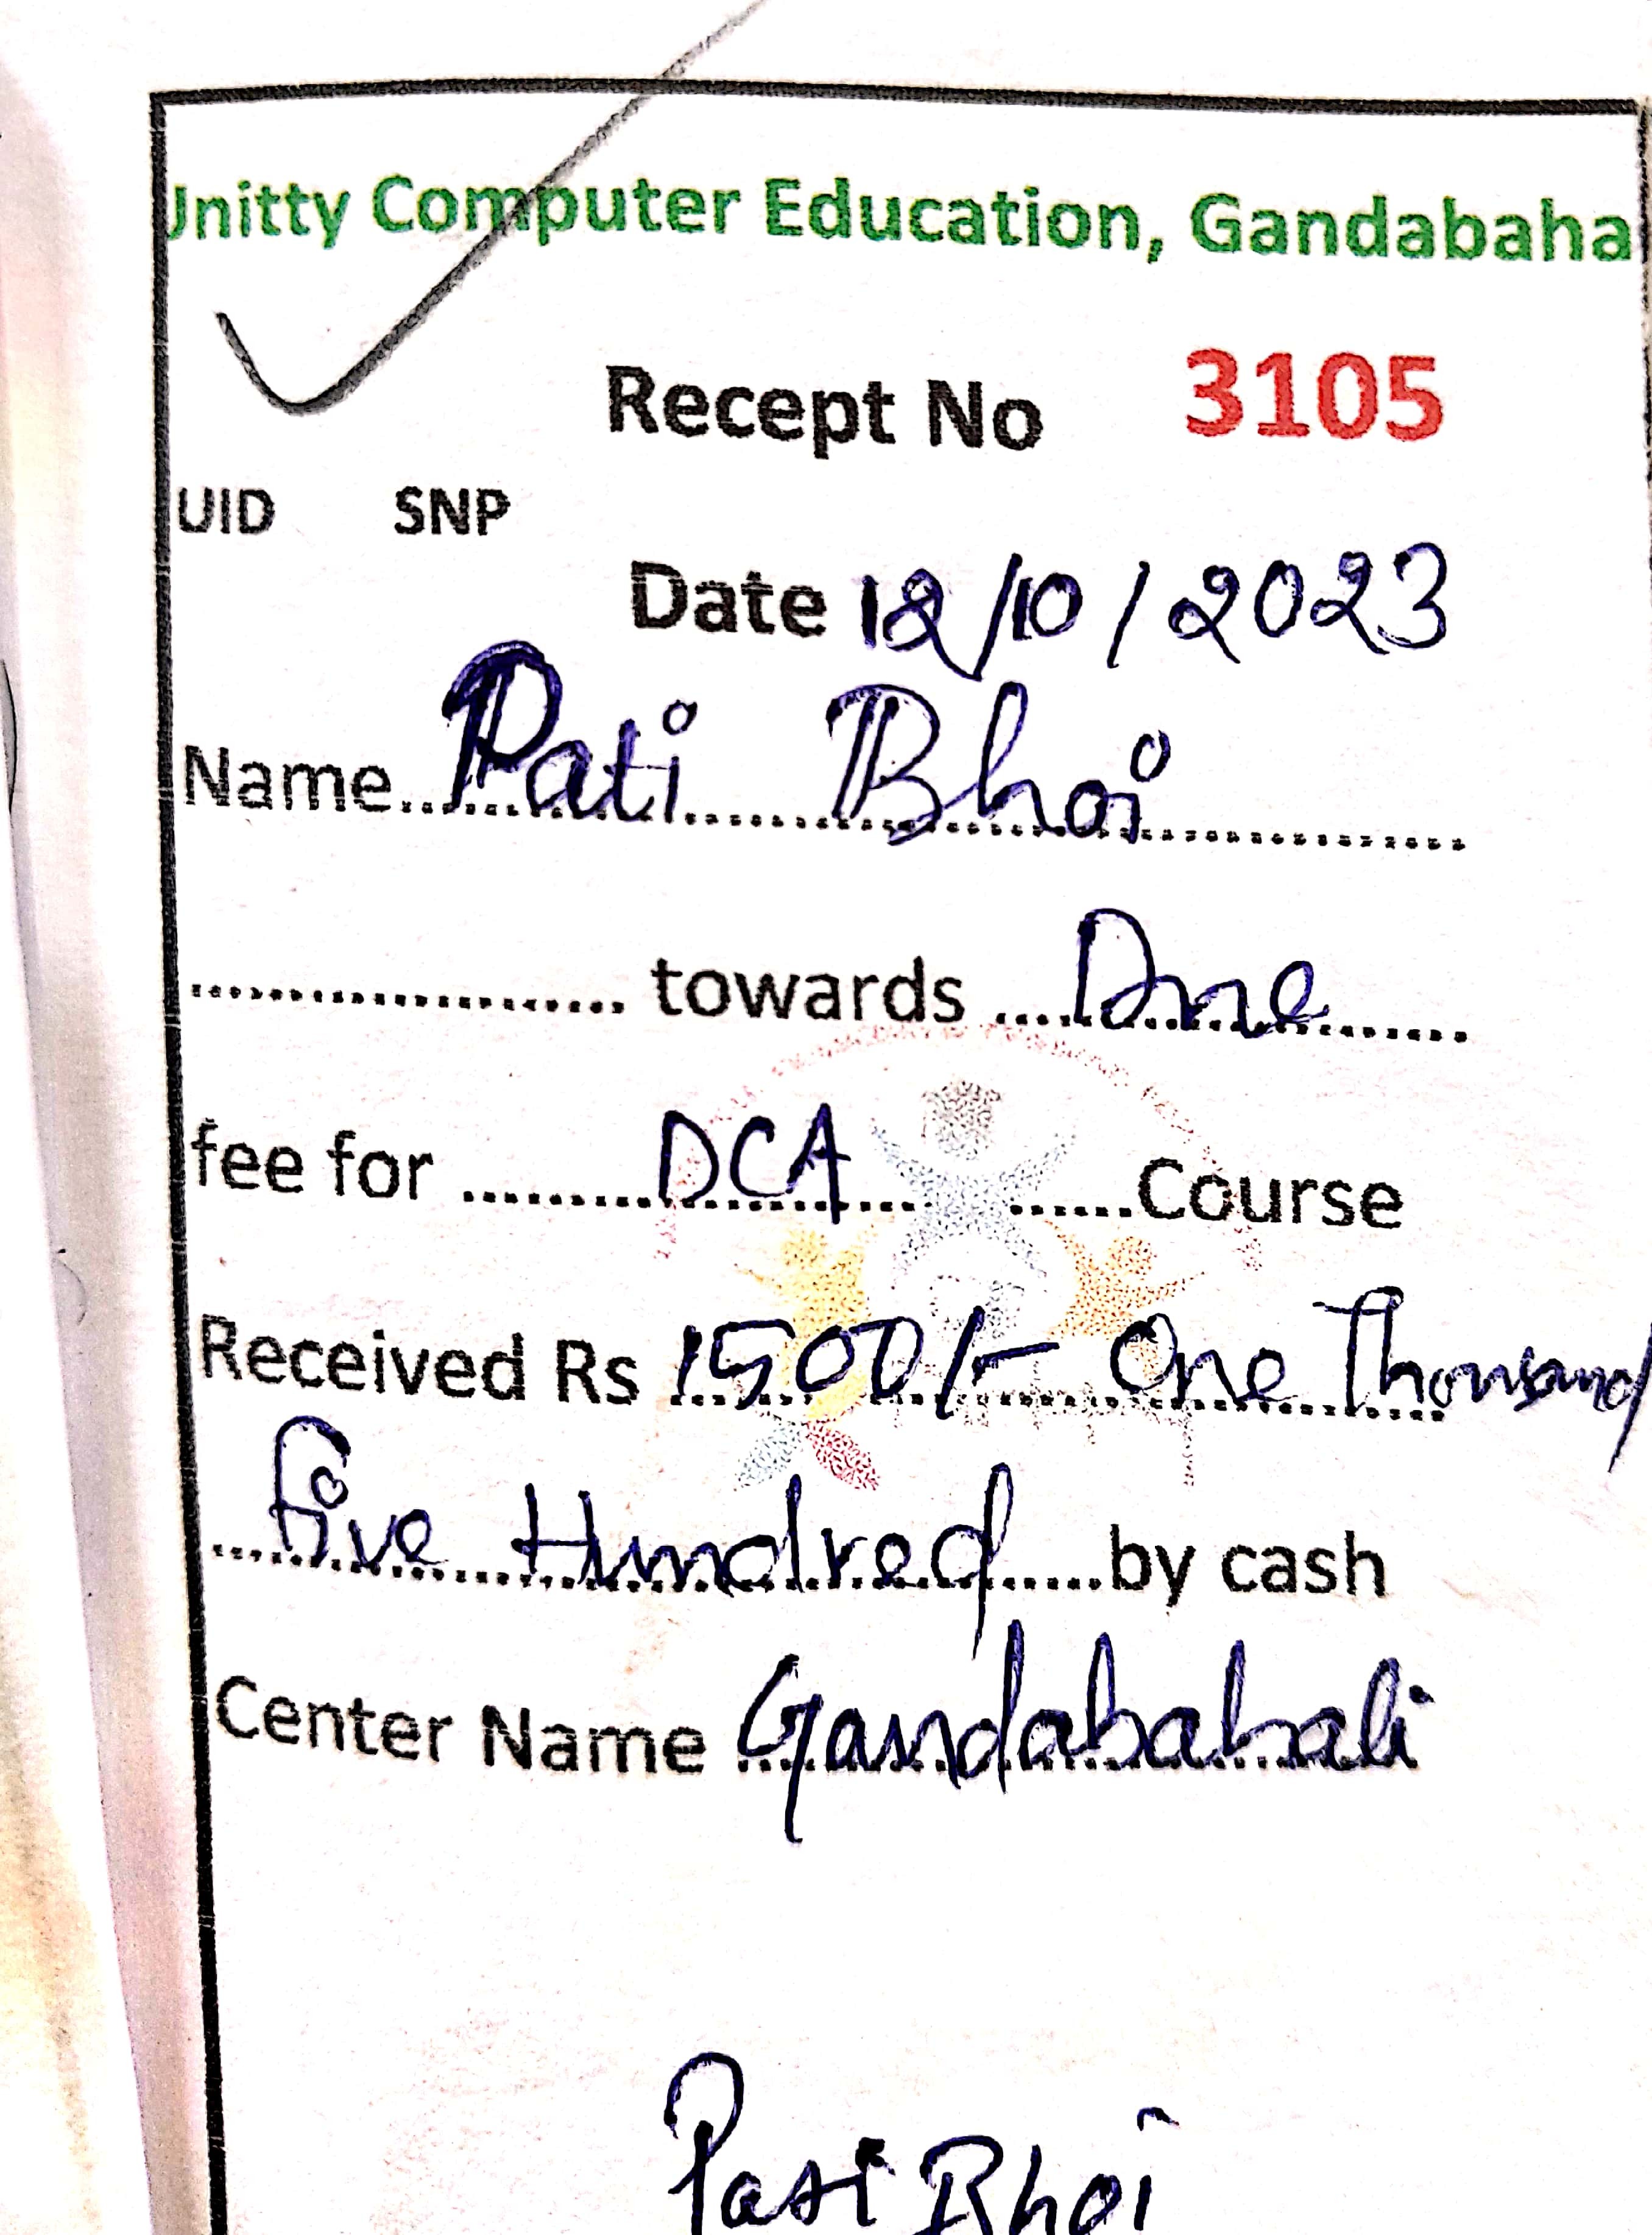 Unitty Computer Education, Gandabaha
Recept No 3105
UID SNP
Date 12/10/2023
Name Pati Bhoi
towards Due
fee for DCA Course
Received Rs 1500/- One Thousand
five Hundred by cash
Center Name Gandabahali
Pati Bhoi